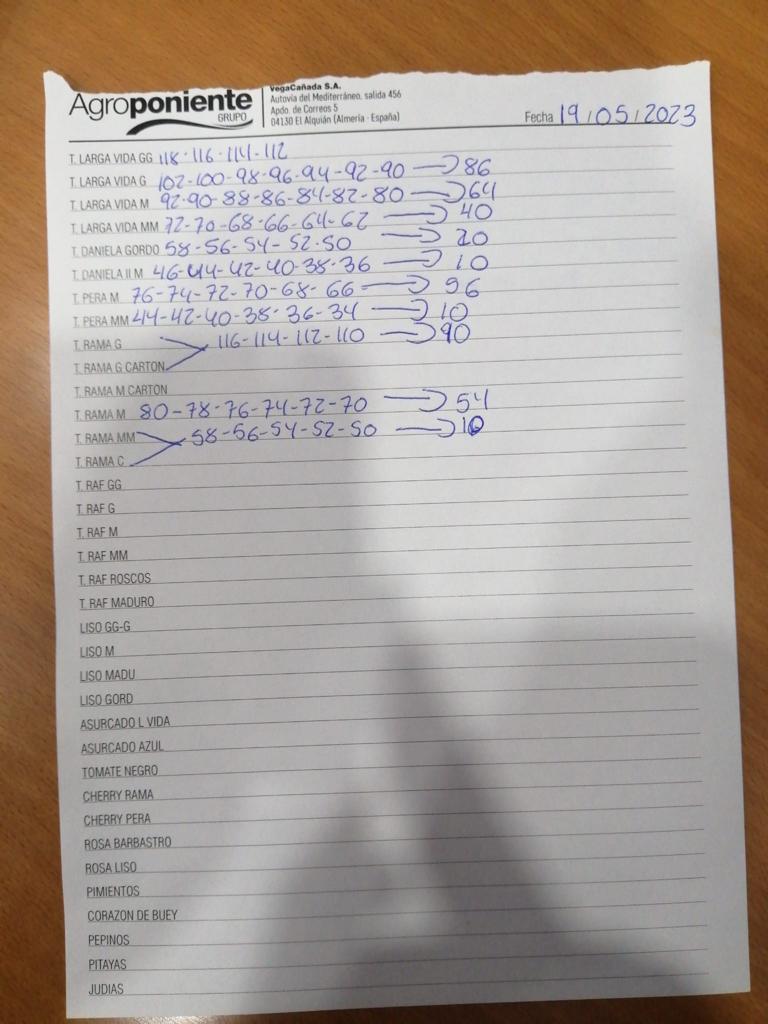 Agroponiente
GRUPO
VegaCañada S.A.
Autovía del Mediterráneo, salida 456
Apdo. de Correos 5
04130 El Alquián (Almería - España)
Fecha 19/05/2023
T. LARGA VIDA GG 118-116-114-112
T. LARGA VIDA G 102-100-98-96-94-92-90 → 86
T. LARGA VIDA M 92-90-88-86-84-82-80 → 64
T. LARGA VIDA MM 72-70-68-66-64-62 → 40
T. DANIELA GORDO 58-56-54-52-50 → 20
T. DANIELA II M 46-44-42-40-38-36 → 10
T. PERA M 76-74-72-70-68-66 → 56
T. PERA MM 44-42-40-38-36-34 → 10
T. RAMA G 116-114-112-110 → 90
T. RAMA G CARTON
T. RAMA M CARTON
T. RAMA M 80-78-76-74-72-70 → 54
T. RAMA MM 58-56-54-52-50 → 10
T. RAMA C
T. RAF GG
T. RAF G
T. RAF M
T. RAF MM
T. RAF ROSCOS
T. RAF MADURO
LISO GG-G
LISO M
LISO MADU
LISO GORD
ASURCADO L VIDA
ASURCADO AZUL
TOMATE NEGRO
CHERRY RAMA
CHERRY PERA
ROSA BARBASTRO
ROSA LISO
PIMIENTOS
CORAZON DE BUEY
PEPINOS
PITAYAS
JUDIAS